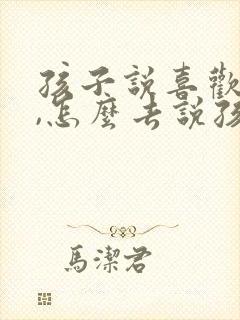 孩子說喜歡
,怎麼去說孩
馬潔君